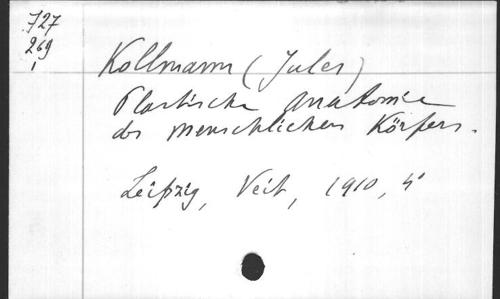 727
269
1
Kollmann (Jules)
Plastische Anatomie
des menschlichen Körpers.
Leipzig, Veit, 1910, 4°